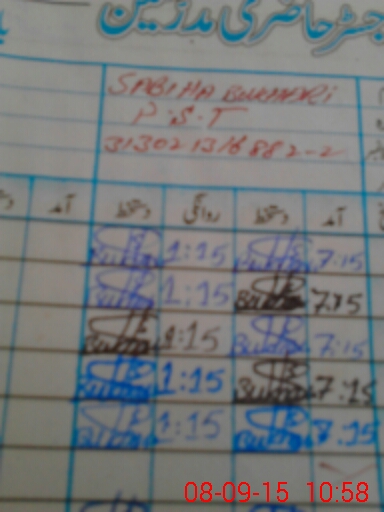 رجسٹر حاضری مدرسین
SABIHA BUKHARI
P.S.T
31302 1316882-2
آمد دستخط روانگی دستخط آمد
7:15 Bukhari 1:15 Bukhari
7:15 Bukhari 1:15 Bukhari
7:15 Bukhari 1:15 Bukhari
7:15 Bukhari 1:15 Bukhari
7:15 Bukhari 1:15 Bukhari
08-09-15 10:58